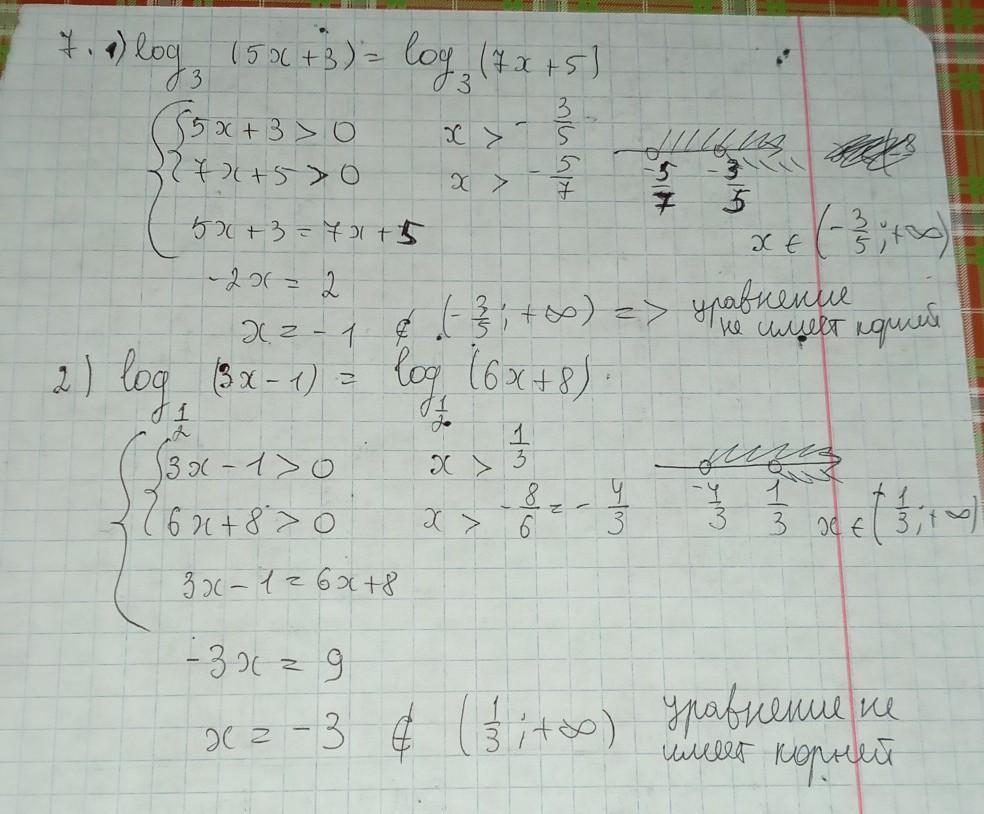 7. 1) log₃ (5x+3) = log₃ (7x+5)
{ 5x+3 > 0    x > -3/5
{ 7x+5 > 0    x > -5/7    -5/7  -3/5
5x+3 = 7x+5    x ∈ (-3/5; +∞)
-2x = 2
x = -1 ∉ (-3/5; +∞) => уравнение
не имеет корней
2) log_{1/2} (3x-1) = log_{1/2} (6x+8).
{ 3x-1 > 0    x > 1/3
{ 6x+8 > 0    x > -8/6 = -4/3    -4/3  1/3    x ∈ (1/3; +∞)
3x-1 = 6x+8
-3x = 9
x = -3 ∉ (1/3; +∞)    уравнение не
имеет корней